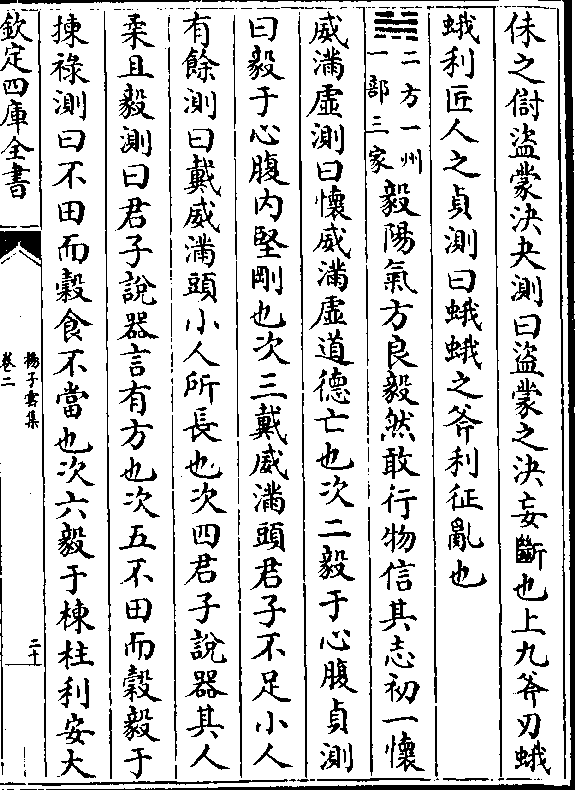 侏之㝮盜蒙決夬測曰盜蒙之決妄斷也上九斧刃蛾
蛾利匠人之貞測曰蛾蛾之斧利征亂也
二方一州
一部三家
毅陽氣方良毅然敢行物信其志初一懷
威滿虛測曰懷威滿虛道德亡也次二毅于心腹貞測
曰毅于心腹内堅剛也次三戴威滿頭君子不足小人
有餘測曰戴威滿頭小人所長也次四君子說器其人
柔且毅測曰君子說器言有方也次五不田而穀毅于
揀祿測曰不田而穀食不當也次六毅于棟柱利安大
欽定四庫全書
揚子雲集
卷二
二十